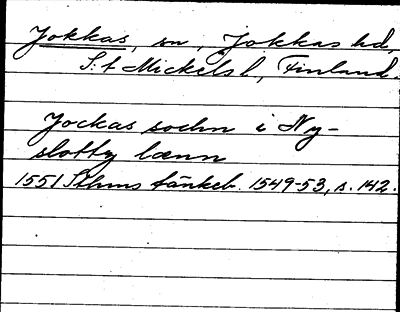 Jokkas, sn, Jokkas hd,
S:t Mickels l, Finland.
Jockas sochn i Ny-
slotty lænn
1551 Sthms tänkeb. 1549-53, s. 142.